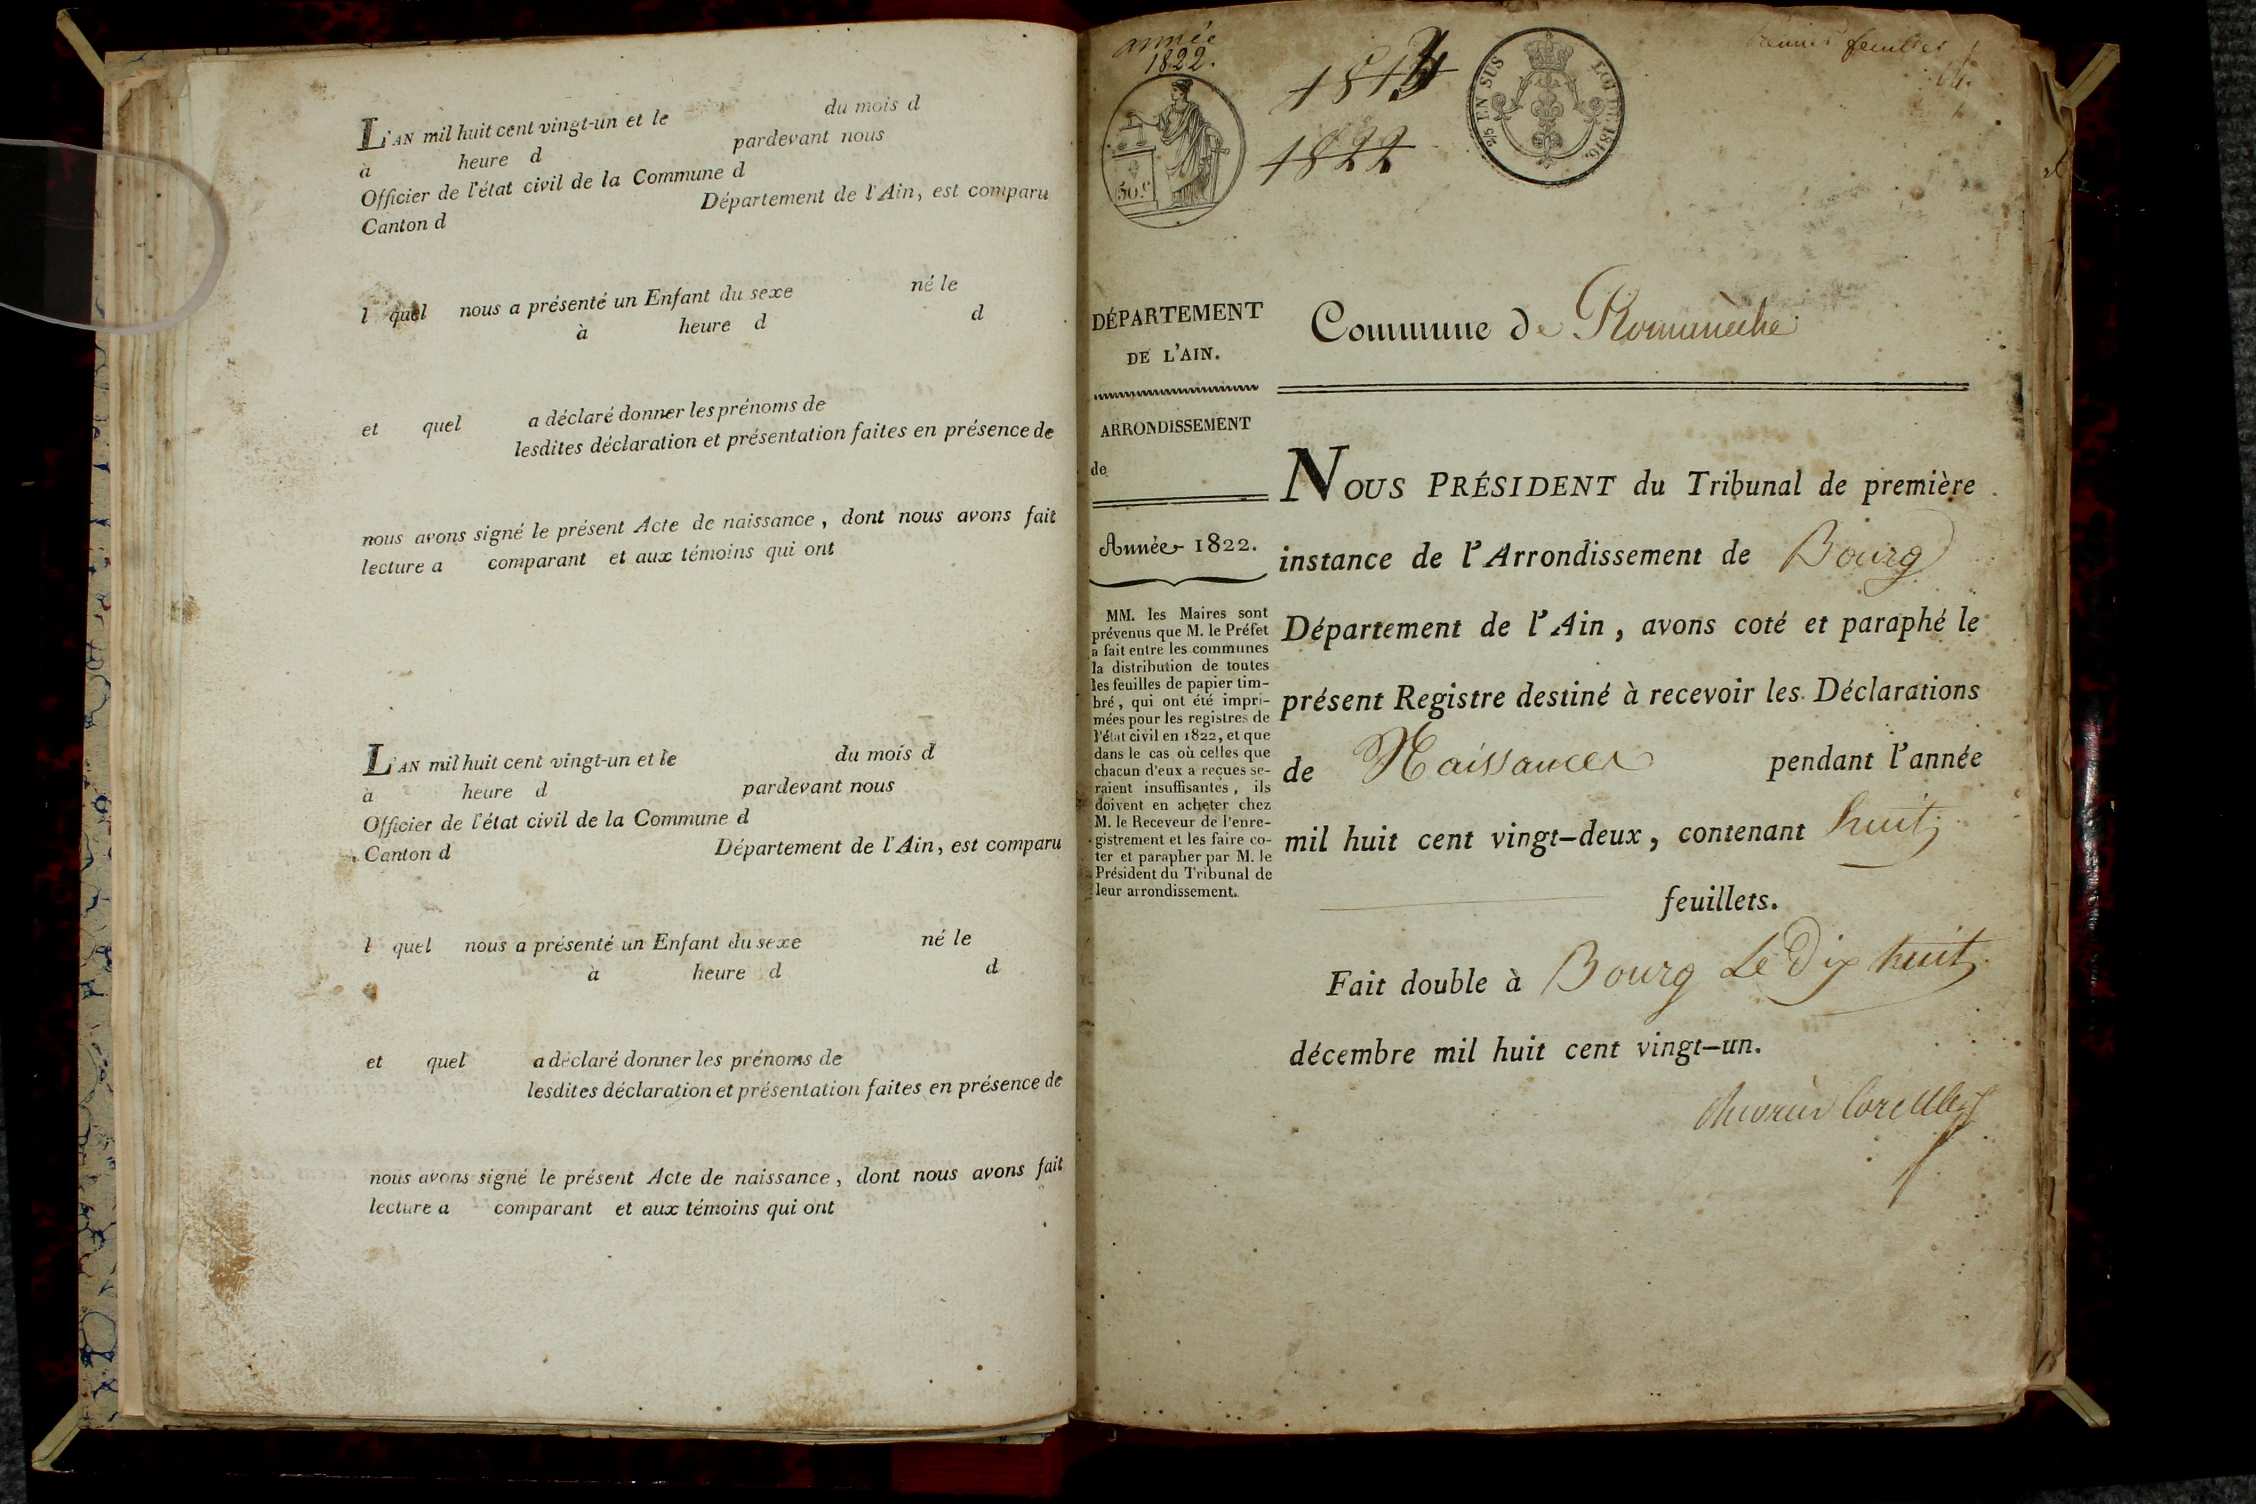 L'AN mil huit cent vingt-un et le du mois d
à heure d pardevant nous
Officier de l'état civil de la Commune d
Canton d Département de l'Ain, est comparu
l quel nous a présenté un Enfant du sexe né le
à heure d d
et quel a déclaré donner les prénoms de
lesdites déclaration et présentation faites en présence de
nous avons signé le présent Acte de naissance, dont nous avons fait
lecture a comparant et aux témoins qui ont
L'AN mil huit cent vingt-un et le du mois d
à heure d pardevant nous
Officier de l'état civil de la Commune d
Canton d Département de l'Ain, est comparu
l quel nous a présenté un Enfant du sexe né le
à heure d d
et quel a déclaré donner les prénoms de
lesdites déclaration et présentation faites en présence de
nous avons signé le présent Acte de naissance, dont nous avons fait
lecture a comparant et aux témoins qui ont
année
1822.
50 c
1822
2/5 EN SUS LOI DE 1816.
feuillet
DÉPARTEMENT
DE L'AIN.
ARRONDISSEMENT
de
Année 1822.
MM. les Maires sont
prévenus que M. le Préfet
a fait entre les communes
la distribution de toutes
les feuilles de papier tim-
bré, qui ont été impri-
mées pour les registres de
l'état civil en 1822, et que
dans le cas où celles que
chacun d'eux a reçues se-
raient insuffisantes, ils
doivent en acheter chez
M. le Receveur de l'enre-
gistrement et les faire co-
ter et parapher par M. le
Président du Tribunal de
leur arrondissement.
Commune de Romanèche
NOUS PRÉSIDENT du Tribunal de première
instance de l'Arrondissement de Bourg
Département de l'Ain, avons coté et paraphé le
présent Registre destiné à recevoir les Déclarations
de Naissances pendant l'année
mil huit cent vingt-deux, contenant huit
feuillets.
Fait double à Bourg Le Dix huit
décembre mil huit cent vingt-un.